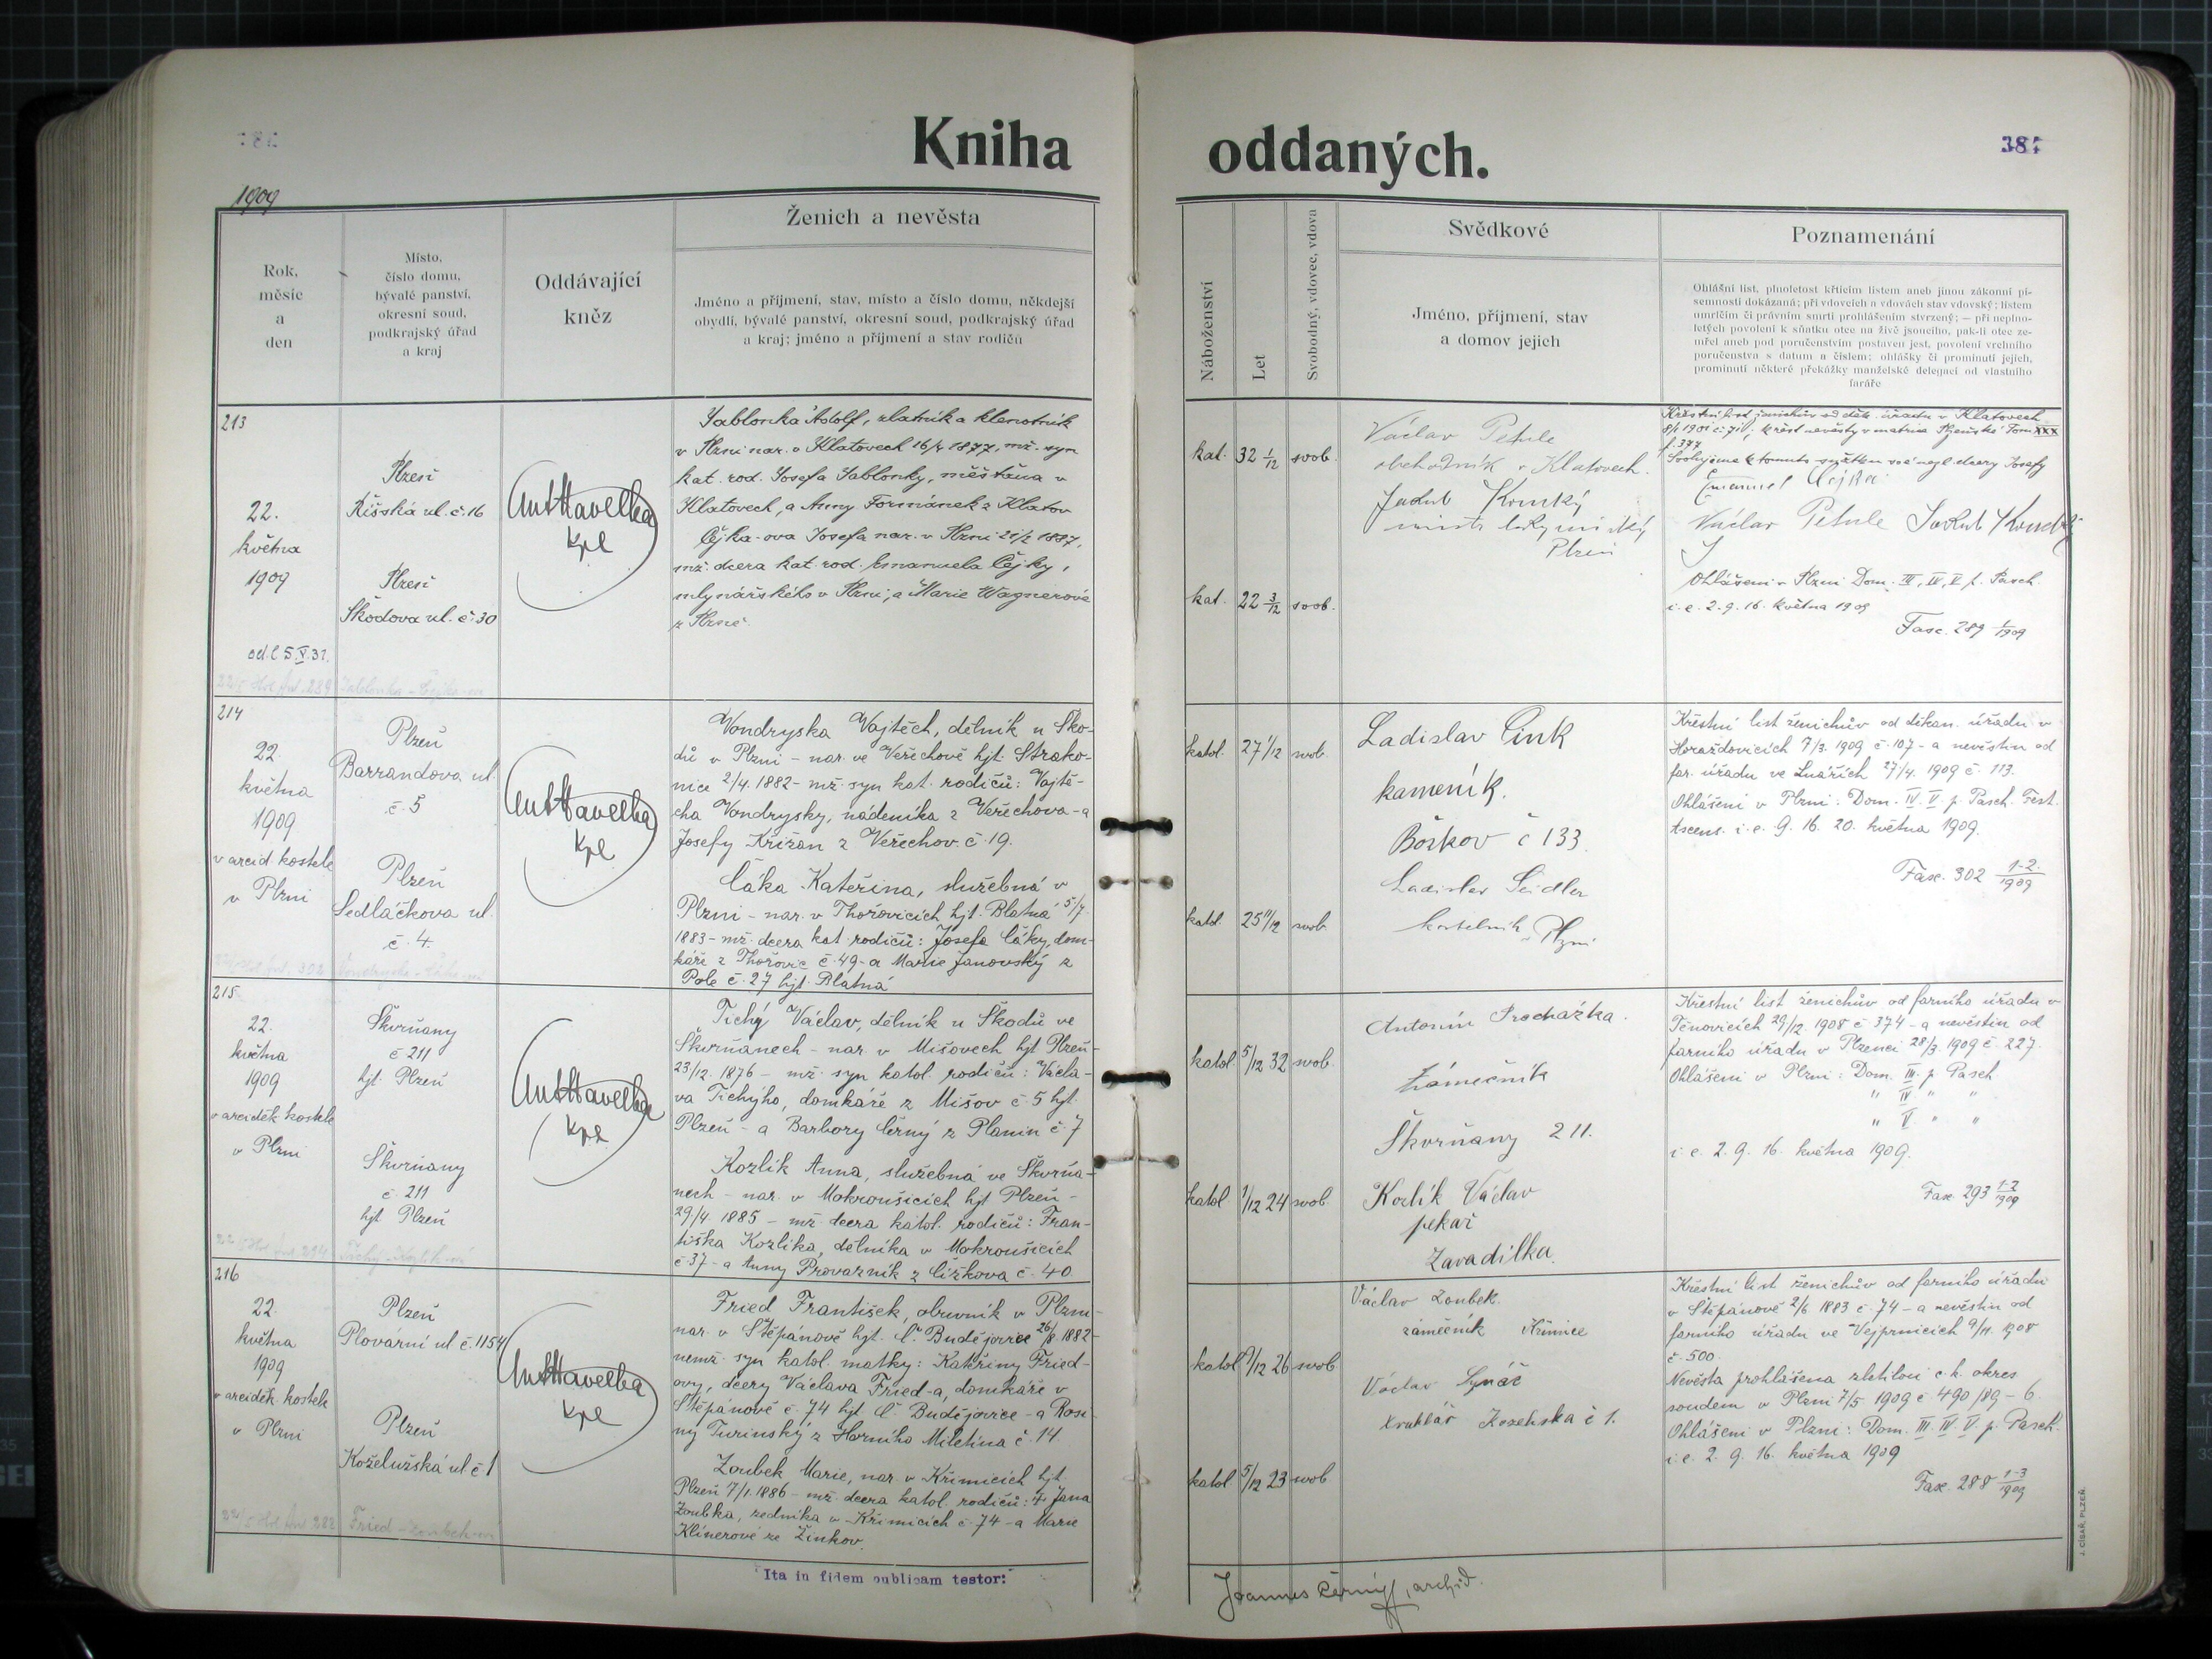 Kniha oddaných.
387
1909
Rok,
měsíc
a
den
Místo,
číslo domu,
bývalé panství,
okresní soud,
podkrajský úřad
a kraj
Oddávající
kněz
Ženich a nevěsta
Jméno a příjmení, stav, místo a číslo domu, někdejší
obydlí, bývalé panství, okresní soud, podkrajský úřad
a kraj; jméno a příjmení a stav rodičů
Náboženství
Let
Svobodný, vdovec, vdova
Svědkové
Jméno, příjmení, stav
a domov jejich
Poznamenání
Ohlášní list, plnoletost křticím listem aneb jinou zákonní pí-
semností dokázaná; při vdovcích a vdovách stav vdovský; listem
umrlčím či právním smrti prohlášením stvrzený; — při neplno-
letých povolení k sňatku otce na živě jsoucího, pak-li otec ze-
mřel aneb pod poručenstvím postaven jest, povolení vrchního
poručenstva s datum a číslem; ohlášky či prominutí jejich,
prominutí některé překážky manželské delegací od vlastního
faráře
213
22.
května
1909
od. l 5.V.31.
Plzeň
Říšská ul. č. 16
Plzeň
Škodova ul. č. 30
Ant Havelka
kpl
Jablonka Adolf, zlatník a klenotník
v Plzni nar. v Klatovech 16/4 1877, mž. syn
kat. rod. Josefa Jablonky, měšťana v
Klatovech, a Anny Formánek z Klatov
Čejka-ova Josefa nar. v Plzni 21/2 1887,
mž. dcera kat. rod. Emanuela Čejky,
mlynářského v Plzni, a Marie Wagnerové
z Plzně.
kat. 32 1/12 svob.
kat. 22 3/12 svob.
Václav Petule
obchodník v Klatovech.
Jakub
Plzeň
Křestní list ženichův od děk. úřadu v Klatovech
f. 377
Svolujeme k tomuto sňatku své nezl. dcery Josefy
Emanuel Čejka
Václav Petule Jakub
Ohlášeni v Plzni Dom. III, IV, V p. Pasch.
i. e. 2. 9. 16. května 1909
Fasc. 289 1/1909
214
22
května
1909
v arcid. kostele
v Plzni
Plzeň
Barrandova ul.
č. 5
Plzeň
Sedláčkova ul.
č. 4.
Ant Havelka
kpl
Vondryska Vojtěch, dělník u Ško-
dů v Plzni – nar. ve Veřechově hjt. Strako-
nice 2/4. 1882 – mž. syn kat. rodičů: Vojtě-
cha Vondrysky, nádeníka z Veřechova – a
Josefy Křižan z Veřechov. č. 19.
Čáka Kateřina, služebná v
Plzni – nar. v Thořovicích hjt. Blatná 5/7.
1883 – mž. dcera kat. rodičů: Josefa Čáky, dom-
káře z Thořovic č. 49 – a Marie Janovský z
Pole č. 27 hjt. Blatná
katol. 27 1/12 svob.
katol. 25 11/12 svob.
Ladislav Cink
kameník.
Božkov č 133.
Ladislav Seidler
kostelník v Plzni
Křestní list ženichův od děkan. úřadu v
Horažďovicích 7/3. 1909 č. 107 – a nevěstin od
far. úřadu ve Lnářích 27/4. 1909 č. 113.
Ohlášeni v Plzni: Dom. IV. V. p. Pasch. Fest.
Ascens. i. e. 9. 16. 20. května 1909.
Fasc. 302 1-2./1909
215
22.
května
1909
v arciděk. kostele
v Plzni
Škvrňany
č 211
hjt. Plzeň
Škvrňany
č. 211
hjt Plzeň
Ant Havelka
kpl
Tichý Václav, dělník u Škodů ve
Škvrňanech – nar. v Mišovech hjt Plzeň –
23/12. 1876 – mž. syn katol. rodičů: Václa-
va Tichýho, domkáře z Mišov č. 5 hjt.
Plzeň – a Barbory Černý z Planin č. 7
Kozlík Anna, služebná ve Škvrňa-
nech – nar. v Mokroušicích hjt Plzeň –
29/4 1885 – mž. dcera katol. rodičů: Fran-
tiška Kozlíka, dělníka v Mokroušicích
č. 37 – a Anny Provazník z Čižkova č. 40.
katol. 5/12 32 svob.
katol 1/12 24 svob
Antonín Procházka.
Zámečník
Škvrňany 211.
Kozlík Václav
pekař
Zavadilka.
Křestní list ženichův od farního úřadu v
Těnovicích 29/12. 1908 č 374 – a nevěstin od
farního úřadu v Plzenci 28/3. 1909 č. 227.
Ohlášeni v Plzni: Dom. III. p. Pasch.
" IV " "
" V. " "
i. e. 2. 9. 16. května 1909.
Fasc 293 1-2/1909
216
22.
května
1909
v arciděk. kostele
v Plzni
Plzeň
Plovární ul č. 1154
Plzeň
Koželužská ul č 1
Ant Havelka
kpl
Fried František, obuvník v Plzni –
nar. v Štěpánově hjt. Č. Budějovice 26/8 1882 –
nemž. syn katol. matky: Kateřiny Fried-
ovy, dcery Václava Fried-a, domkáře v
Štěpánově č. 74 hjt. Č. Budějovice – a Rosi-
ny Turinský z Horního Miletína č. 14.
Zoubek Marie, nar. v Křimicích hjt.
Plzeň 7/1. 1886 – mž. dcera katol. rodičů: † Jana
Zoubka, zedníka v Křimicích č. 74 – a Marie
Klinerové ze Žinkov.
katol 9/12 26 svob
katol 5/12 23 svob
Václav Zoubek.
zámečník Křimice
Václav
truhlář č 1.
Křestní list ženichův od farního úřadu
v Štěpánově 2/6 1883 č. 74 – a nevěstin od
farního úřadu ve Vejprnicích 9/11. 1908
č. 500.
Nevěsta prohlášena zletilou c. k. okres.
soudem v Plzni 7/5. 1909 č 490/89 – 6.
Ohlášeni v Plzni: Dom. III. IV. V p. Pasch.
i. e. 2. 9. 16. května 1909
Fasc. 288 1-3/1909
"Ita in fidem publicam testor:"
Joannes Černý, archid.
J. CÍSAŘ, PLZEŇ.